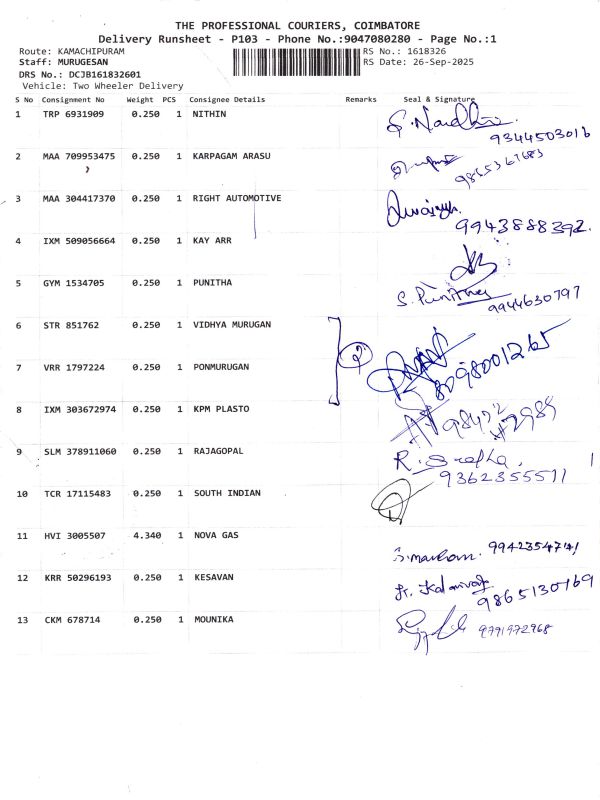 THE PROFESSIONAL COURIERS, COIMBATORE
Delivery Runsheet - P103 - Phone No.:9047080280 - Page No.:1
Route: KAMACHIPURAM RS No.: 1618326
Staff: MURUGESAN RS Date: 26-Sep-2025
DRS No.: DCJB161832601
Vehicle: Two Wheeler Delivery
S No Consignment No Weight PCS Consignee Details Remarks Seal & Signature
1 TRP 6931909 0.250 1 NITHIN
9344503016
2 MAA 709953475 0.250 1 KARPAGAM ARASU
9865367683
3 MAA 304417370 0.250 1 RIGHT AUTOMOTIVE
9943888392.
4 IXM 509056664 0.250 1 KAY ARR
5 GYM 1534705 0.250 1 PUNITHA S. Punitha
9944630797
6 STR 851762 0.250 1 VIDHYA MURUGAN
2
7 VRR 1797224 0.250 1 PONMURUGAN
8098001265
8 IXM 303672974 0.250 1 KPM PLASTO
9 SLM 378911060 0.250 1 RAJAGOPAL
9362355511
10 TCR 17115483 0.250 1 SOUTH INDIAN
11 HVI 3005507 4.340 1 NOVA GAS
9942354741
12 KRR 50296193 0.250 1 KESAVAN
9865130169
13 CKM 678714 0.250 1 MOUNIKA
9791972968